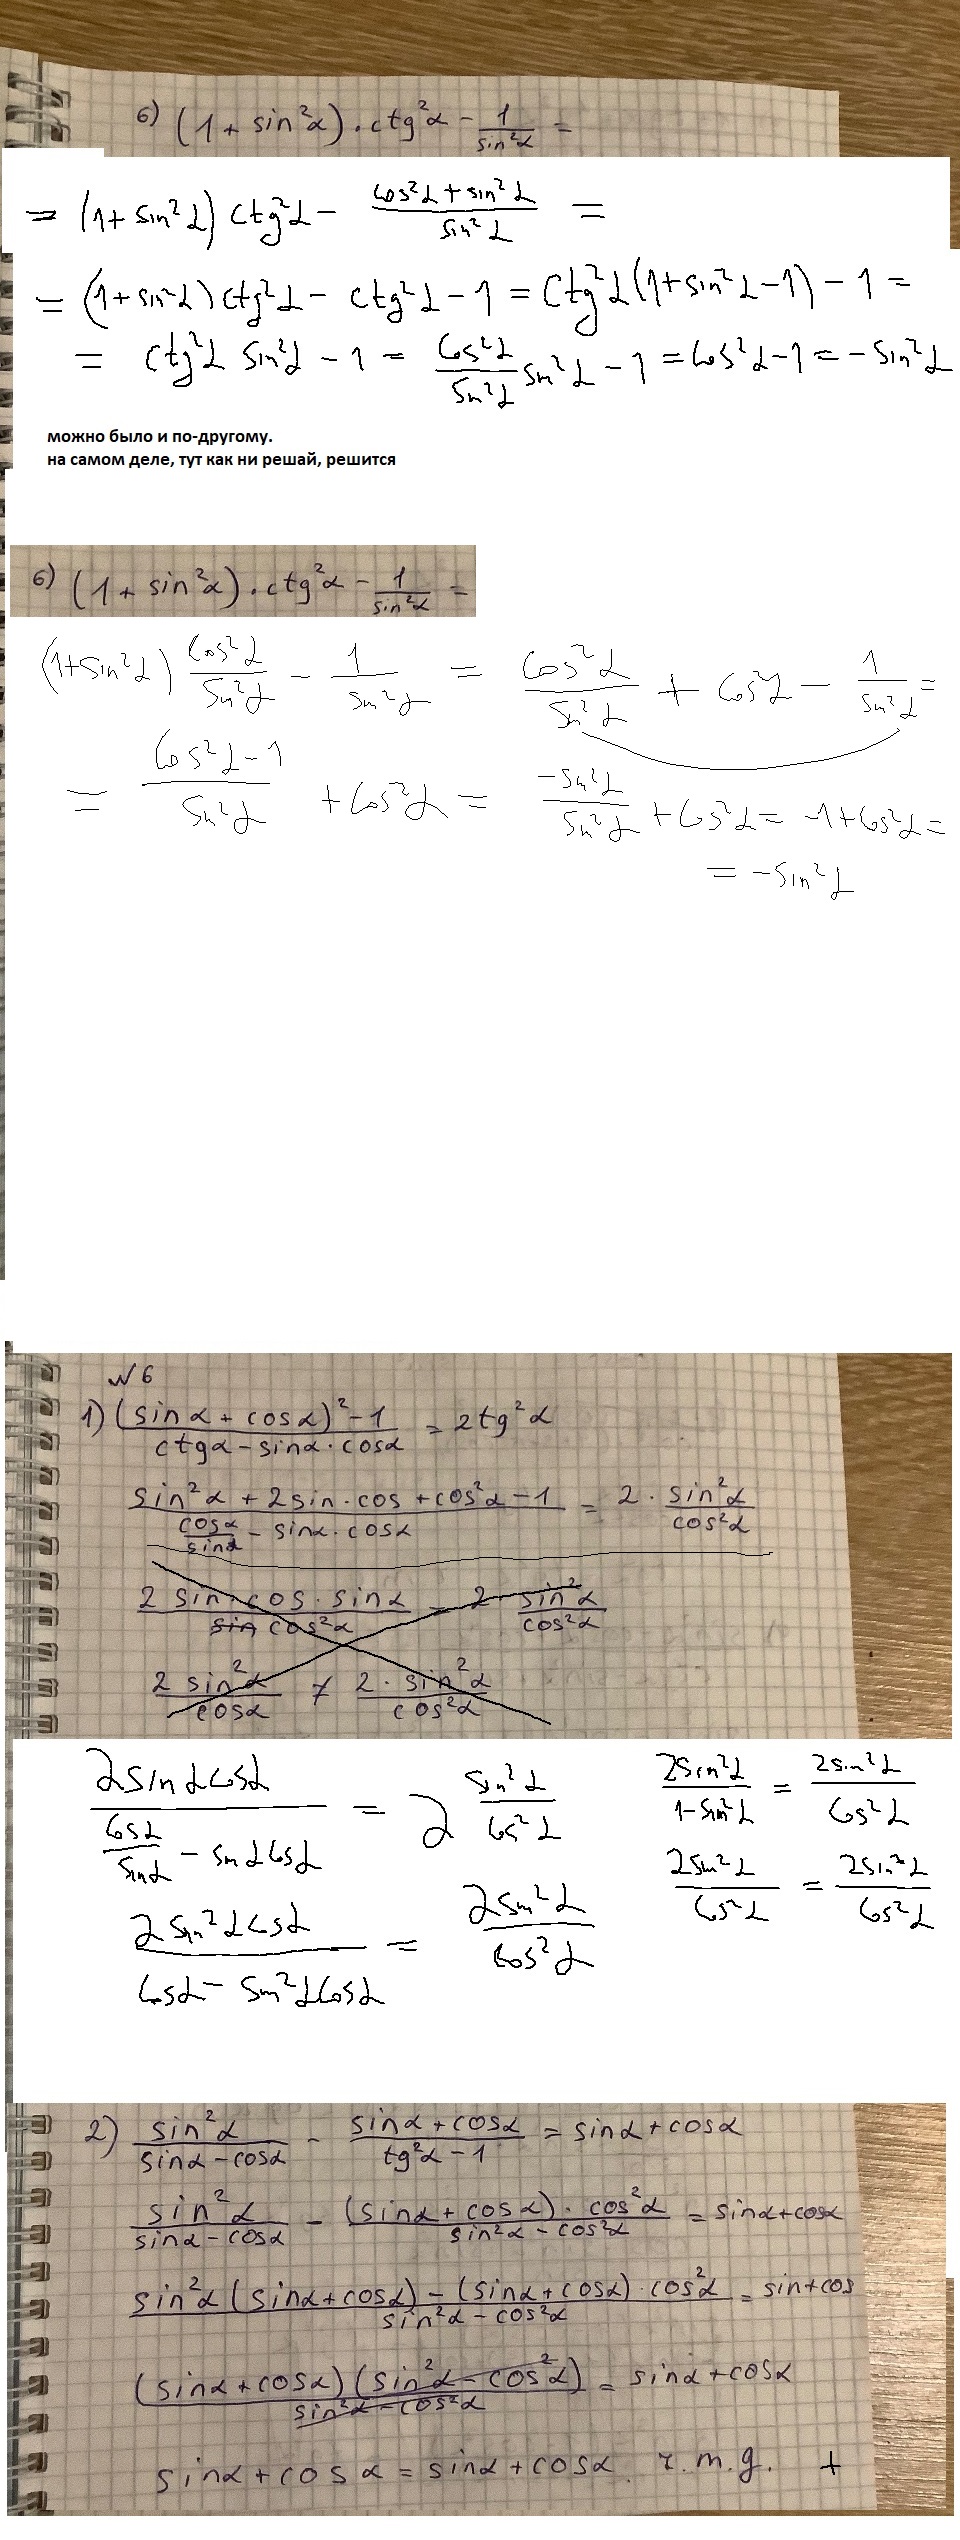 6) (1 + sin²α) · ctg²α − 1/sin²α =
= (1 + sin²α) ctg²α − (cos²α + sin²α)/sin²α =
= (1 + sin²α) ctg²α − ctg²α − 1 = ctg²α (1 + sin²α − 1) − 1 =
= ctg²α sin²α − 1 = cos²α/sin²α sin²α − 1 = cos²α − 1 = − sin²α
можно было и по-другому.
на самом деле, тут как ни решай, решится
6) (1 + sin²α) · ctg²α − 1/sin²α =
(1 + sin²α) cos²α/sin²α − 1/sin²α = cos²α/sin²α + cos²α − 1/sin²α =
= (cos²α − 1)/sin²α + cos²α = −sin²α/sin²α + cos²α = −1 + cos²α =
= − sin²α
№6
1) ((sinα + cosα)² − 1)/(ctgα − sinα · cosα) = 2tg²α
(sin²α + 2sin · cos + cos²α − 1)/(cosα/sinα − sinα · cosα) = 2 · sin²α/cos²α
(2 sin · cos · sinα)/(sin cos²α) = 2 · sin²α/cos²α
2 sin²α/cosα ≠ 2 · sin²α/cos²α
2sinα cosα/(cosα/sinα − sinα cosα) = 2 sin²α/cos²α
2sin²α cosα/(cosα − sin²α cosα) = 2sin²α/cos²α
2sin²α/(1 − sin²α) = 2sin²α/cos²α
2sin²α/cos²α = 2sin²α/cos²α
2) sin²α/(sinα − cosα) − (sinα + cosα)/(tg²α − 1) = sinα + cosα
sin²α/(sinα − cosα) − ((sinα + cosα) · cos²α)/(sin²α − cos²α) = sinα + cosα
(sin²α (sinα + cosα) − (sinα + cosα) · cos²α)/(sin²α − cos²α) = sin + cos
((sinα + cosα) (sin²α − cos²α))/(sin²α − cos²α) = sinα + cosα
sinα + cosα = sinα + cosα ч.т.д. +